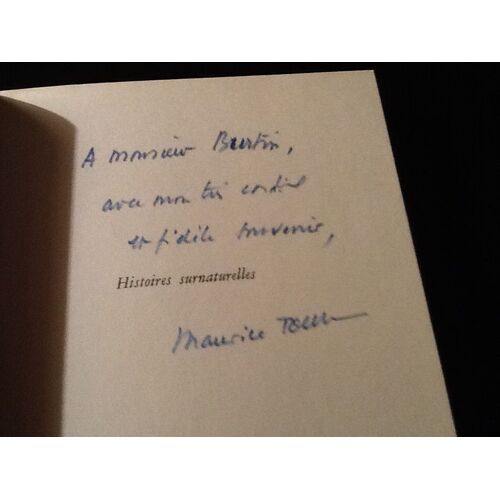 A monsieur Burtin,
avec mon très cordial
et fidèle souvenir,
Histoires surnaturelles
Maurice Toesca